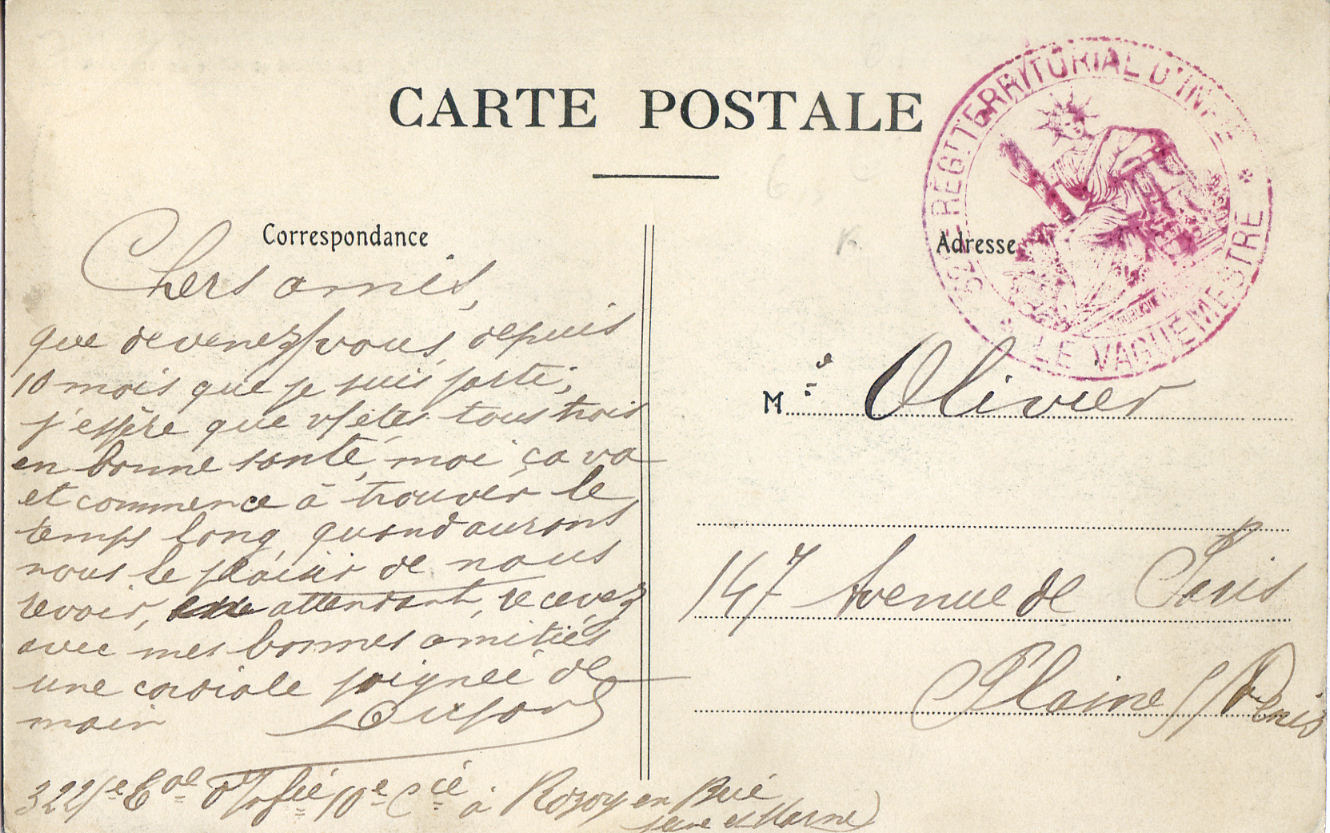 CARTE POSTALE
Correspondance
Chers amis,
que devenez/vous, depuis
10 mois que je suis parti;
j'espère que v/etes tous trois
en bonne santé, moi ça va
et commence à trouver le
temps long quand aurons
nous le plaisir de nous
revoir, en attendant, recevez
avec mes bonnes amitiés
une cordiale poignée de
main
à Rozoy en Brie
Seine et Marne
REGT TERRITORIAL D'INFIE
* LE VAGUEMESTRE *
Adresse
M.r e Olivier
147 Avenue de Paris
Plaine S/ Denis